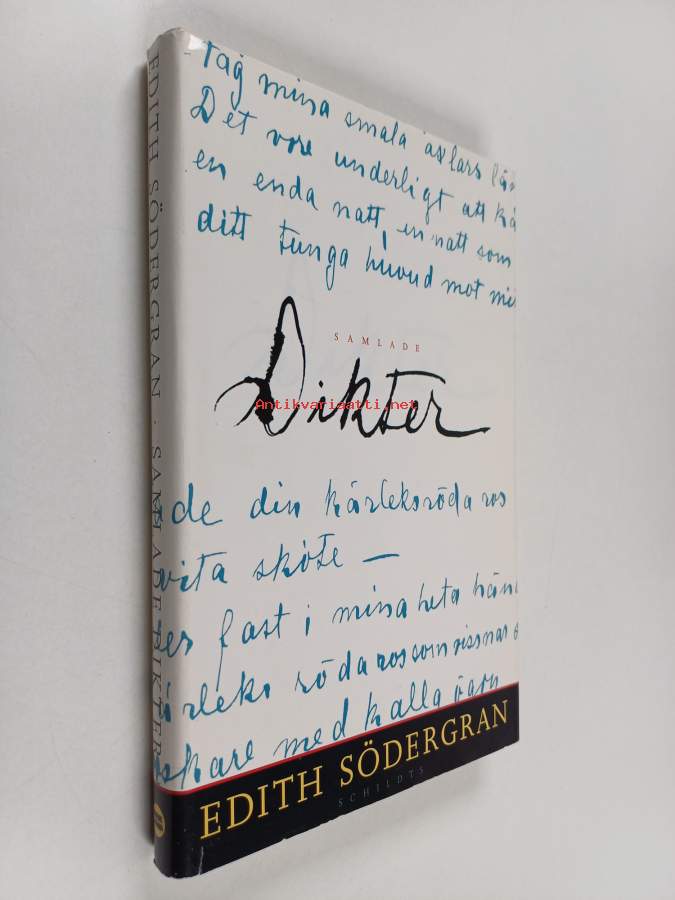 Tag mina smala axlars
Det vore underligt att
en enda natt, en natt som
ditt tunga huvud mot
SAMLADE
Dikter
Antikvariaatti.net
de din kärleksröda ros
vita sköte —
fast i mina heta
röda ros som vissnar
med kalla
EDITH SÖDERGRAN
SCHILDTS
EDITH SÖDERGRAN · SAMLADE DIKTER